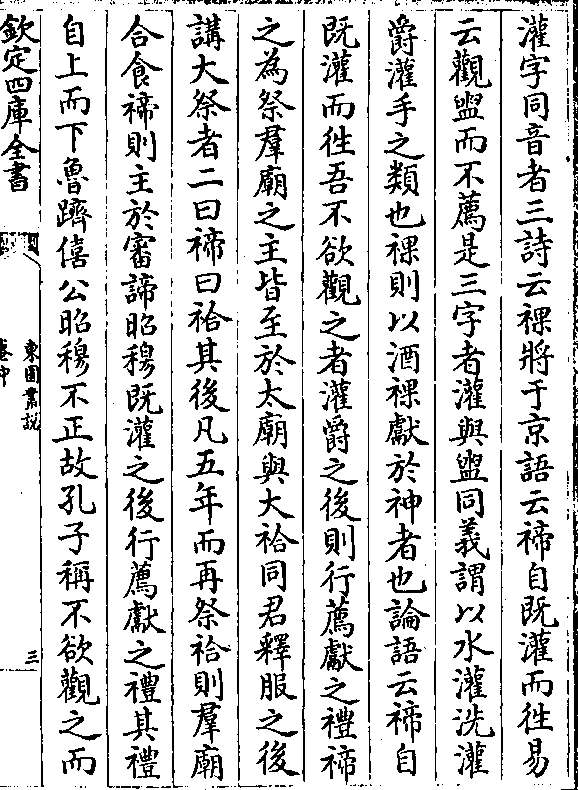 灌字同音者三詩云祼將于京語云禘自既灌而徃易
云觀盥而不薦是三字者灌與盥同義謂以水灌洗灌
爵灌手之類也祼則以酒祼獻於神者也論語云禘自
既灌而徃吾不欲觀之者灌爵之後則行薦獻之禮禘
之為祭羣廟之主皆至於太廟與大祫同君釋服之後
講大祭者二曰禘曰祫其後凡五年而再祭祫則羣廟
合食禘則主於審諦昭穆既灌之後行薦獻之禮其禮
自上而下魯躋僖公昭穆不正故孔子稱不欲觀之而
欽定四庫全書
東園叢說
卷中
三